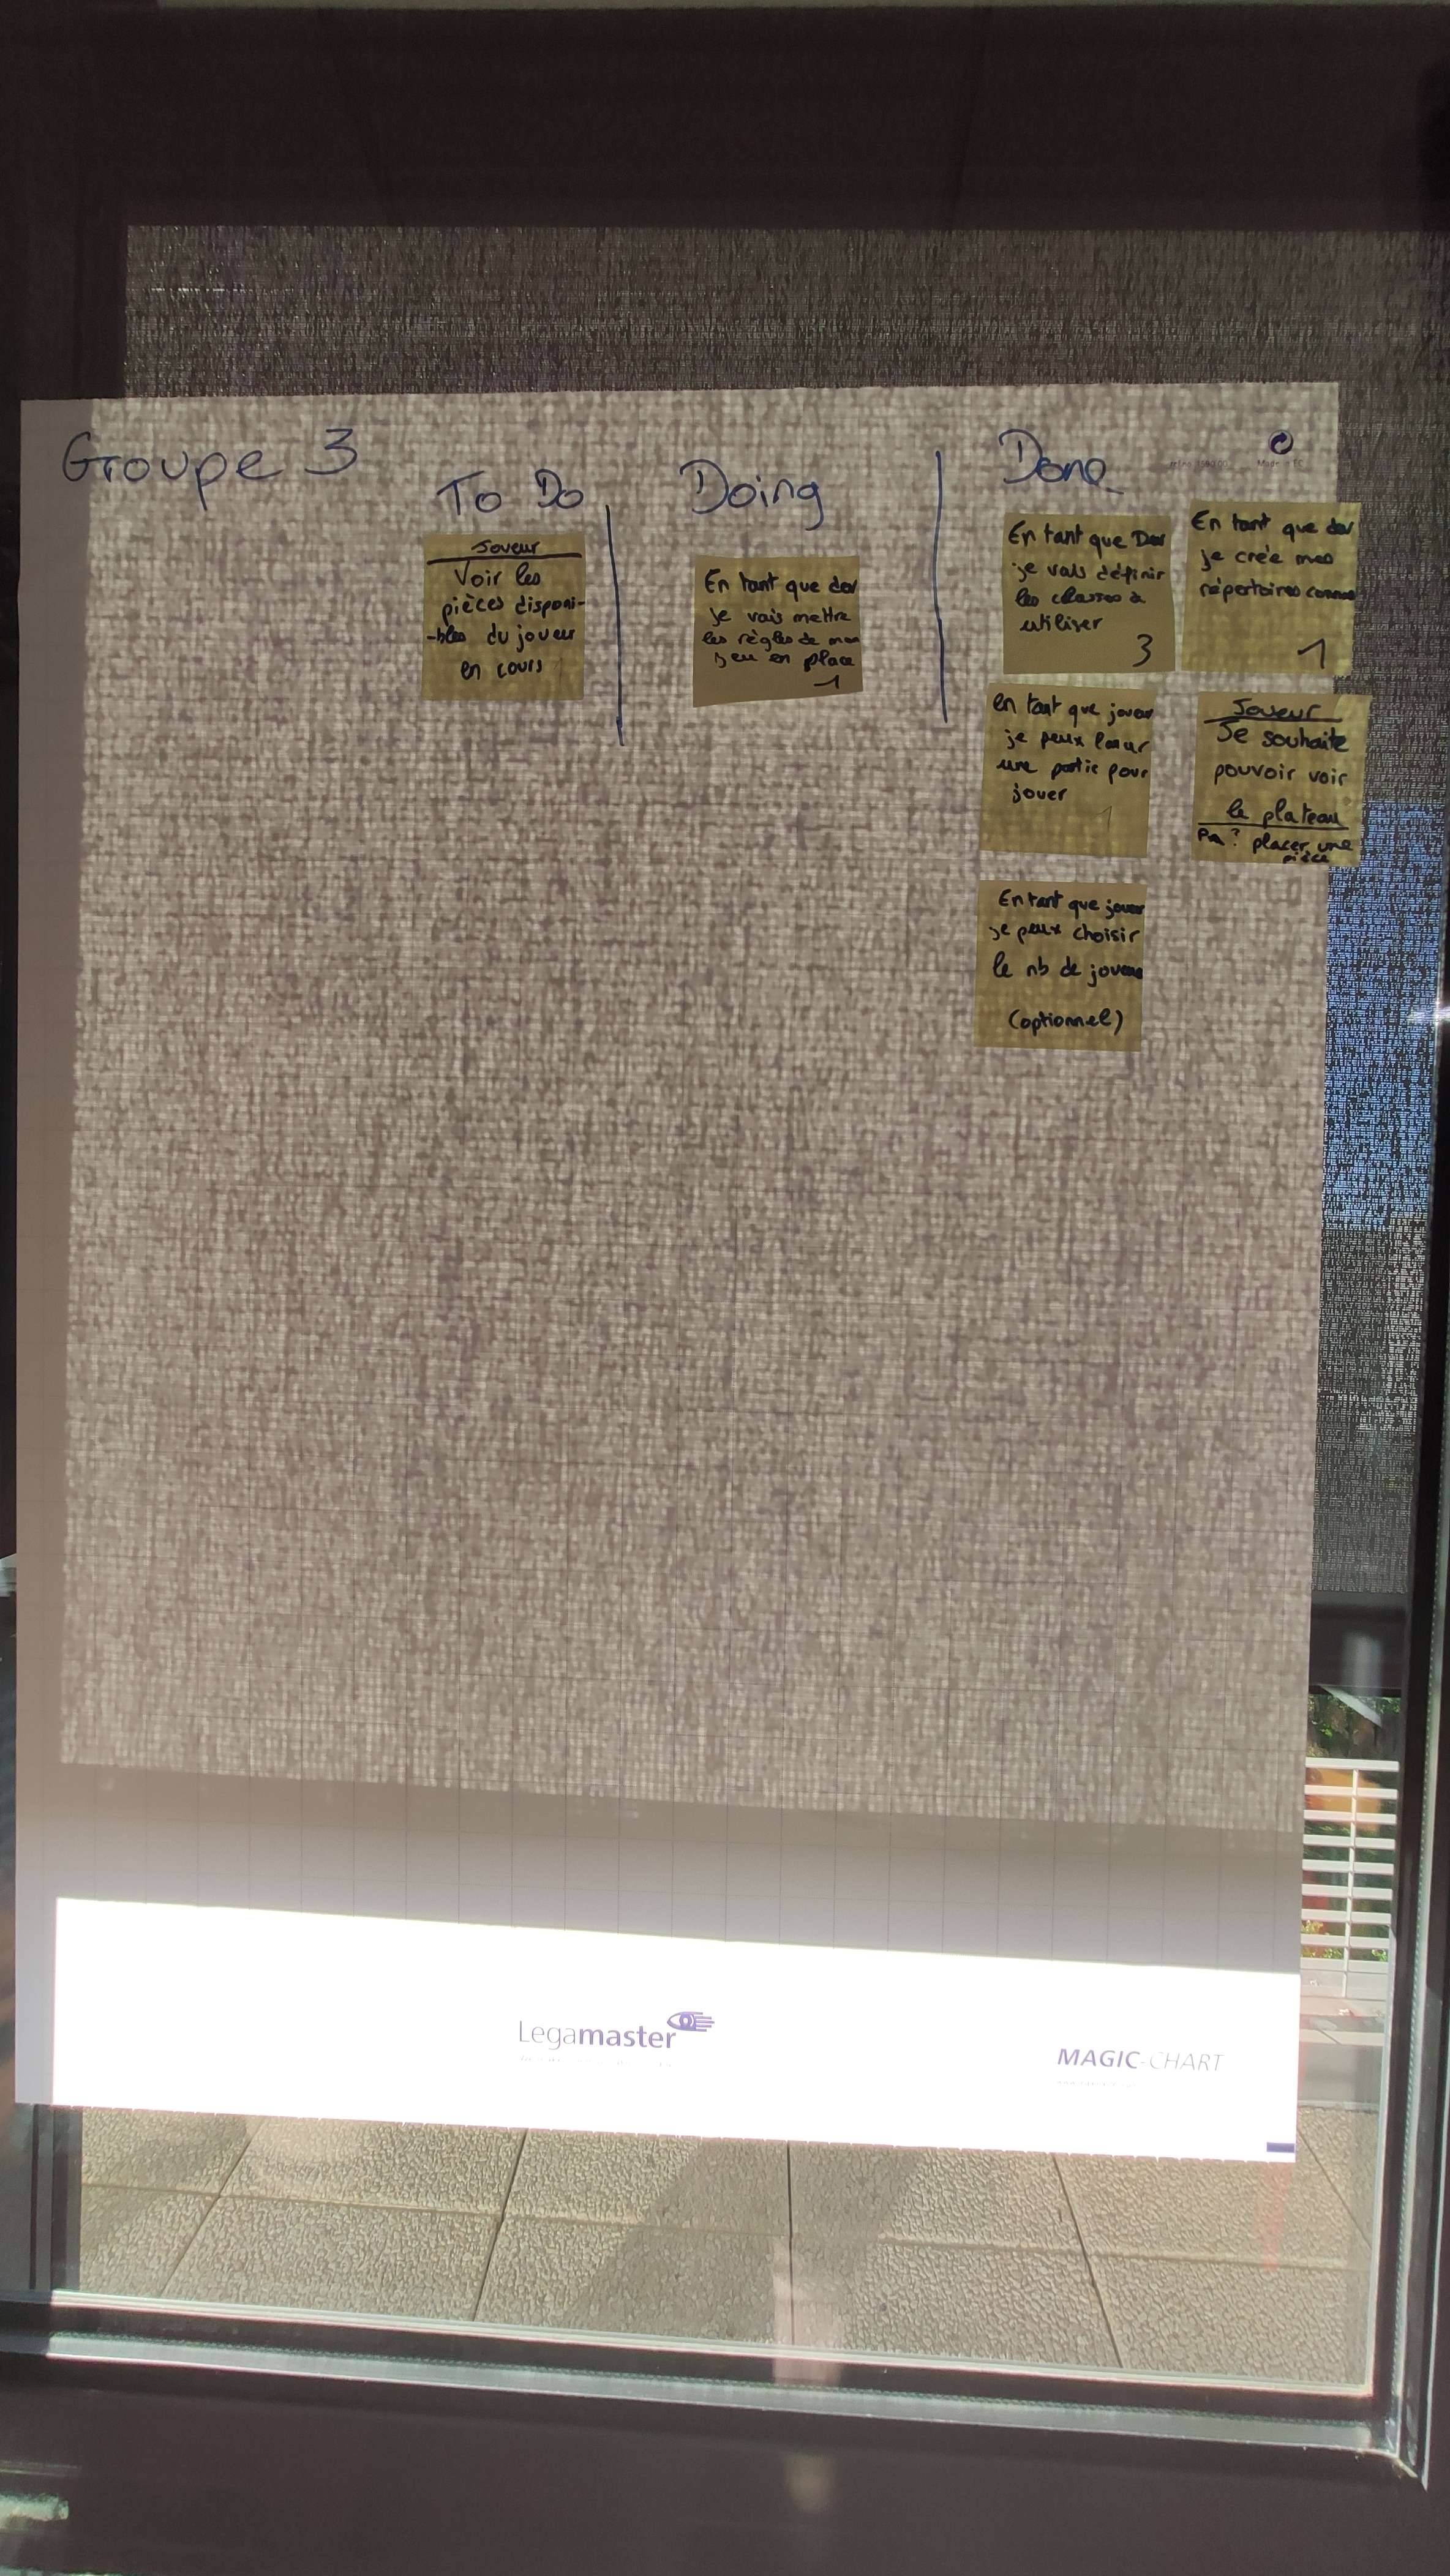 Groupe 3
To Do
Doing
Done
Joueur
Voir les
pièces disponi-
-bles du joueur
en cours
En tant que dev
je vais mettre
les règles de mon
jeu en place
1
En tant que Dev
je vais définir
les classes à
utiliser
3
En tant que dev
je crée mes
répertoires
1
en tant que joueur
je peux
une partie pour
jouer
1
Joueur
Je souhaite
pouvoir voir
le plateau
? placer une
pièce
En tant que joueur
je peux choisir
le nb de joueurs
(optionnel)
Legamaster
MAGIC-CHART